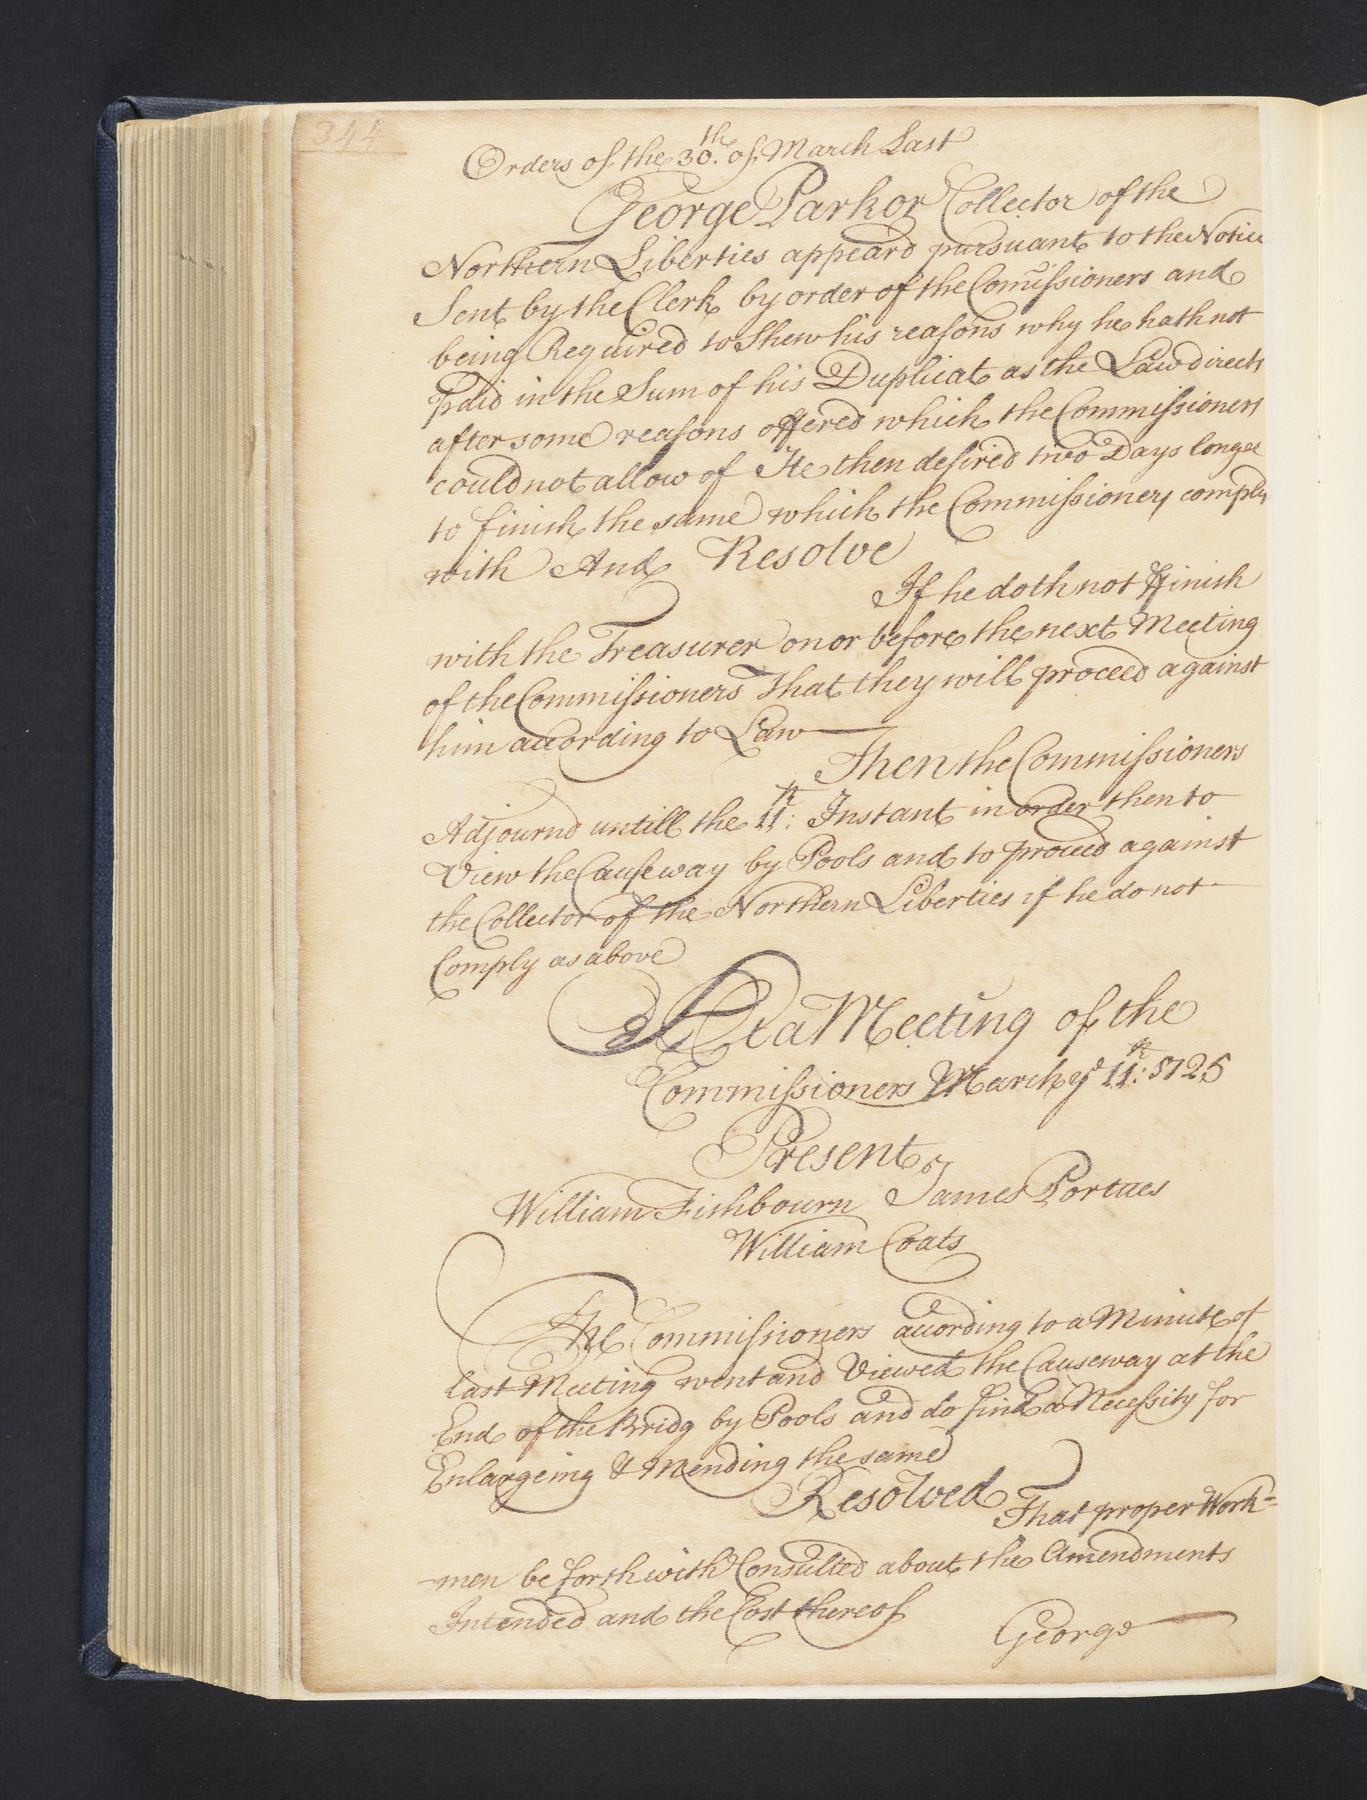 344
Orders of the 30.th of March Last
George Parker Collector of the
Northern Liberties appeard pursuant to the Notice
Sent by the Clerk by order of the Com̃issioners and
being Required to Shew his reasons why he hath not
paid in the Sum of his Duplicat as the Law directs
after some reasons offered which the Commissioners
could not allow of He then desired two Days longer
to finish the same which the Commissioners comply
with And Resolve
If he doth not ffinish
with the Treasurer on or before the next Meeting
of the Commissioners That they will proceed against
him according to Law
Then the Commissioners
Adjournd untill the 11:th Instant in order then to
View the Causeway by Pools and to proceed against
the Collector of the Northern Liberties if he do not
Comply as above
At a Meeting of the
Commissioners March ye 11:th 1725
Present
William Fishbourn James Portues
William Coats
The Commissioners according to a Minute of
last Meeting went and Viewed the Causeway at the
End of the Bridg by Pools and do find a Necessity for
Enlargeing & Mending the same
Resolved That proper Work=
men be forthwith Consulted about the Amendments
Intended and the Cost thereof
George